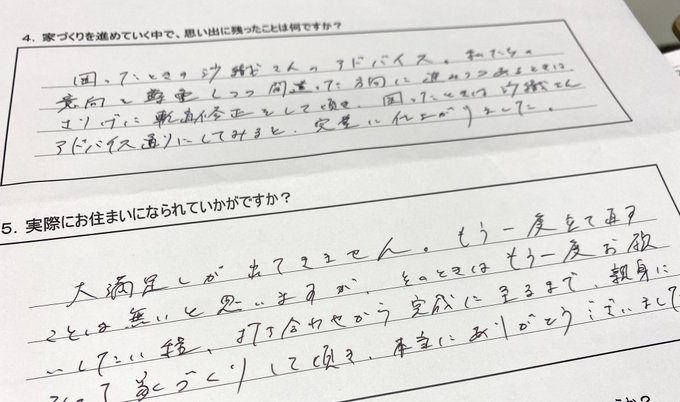 4. 家づくりを進めていく中で、思い出に残ったことは何ですか？
困ったときの沙織さんのアドバイス。私たちの
意向を尊重しつつ間違った方向に進みつつあるときは、
さりげに軌道修正をして頂き、困ったときは沙織さん
アドバイス通りにしてみると、完璧に仕上がりました。
5. 実際にお住まいになられていかがですか？
大満足しか出てきません。もう一度建て直す
ことは無いと思いますが、そのときはもう一度お願
いしたい程、打ち合わせから完成に至るまで、親身に
なって家づくりして頂き、本当にありがとうございまし
か？